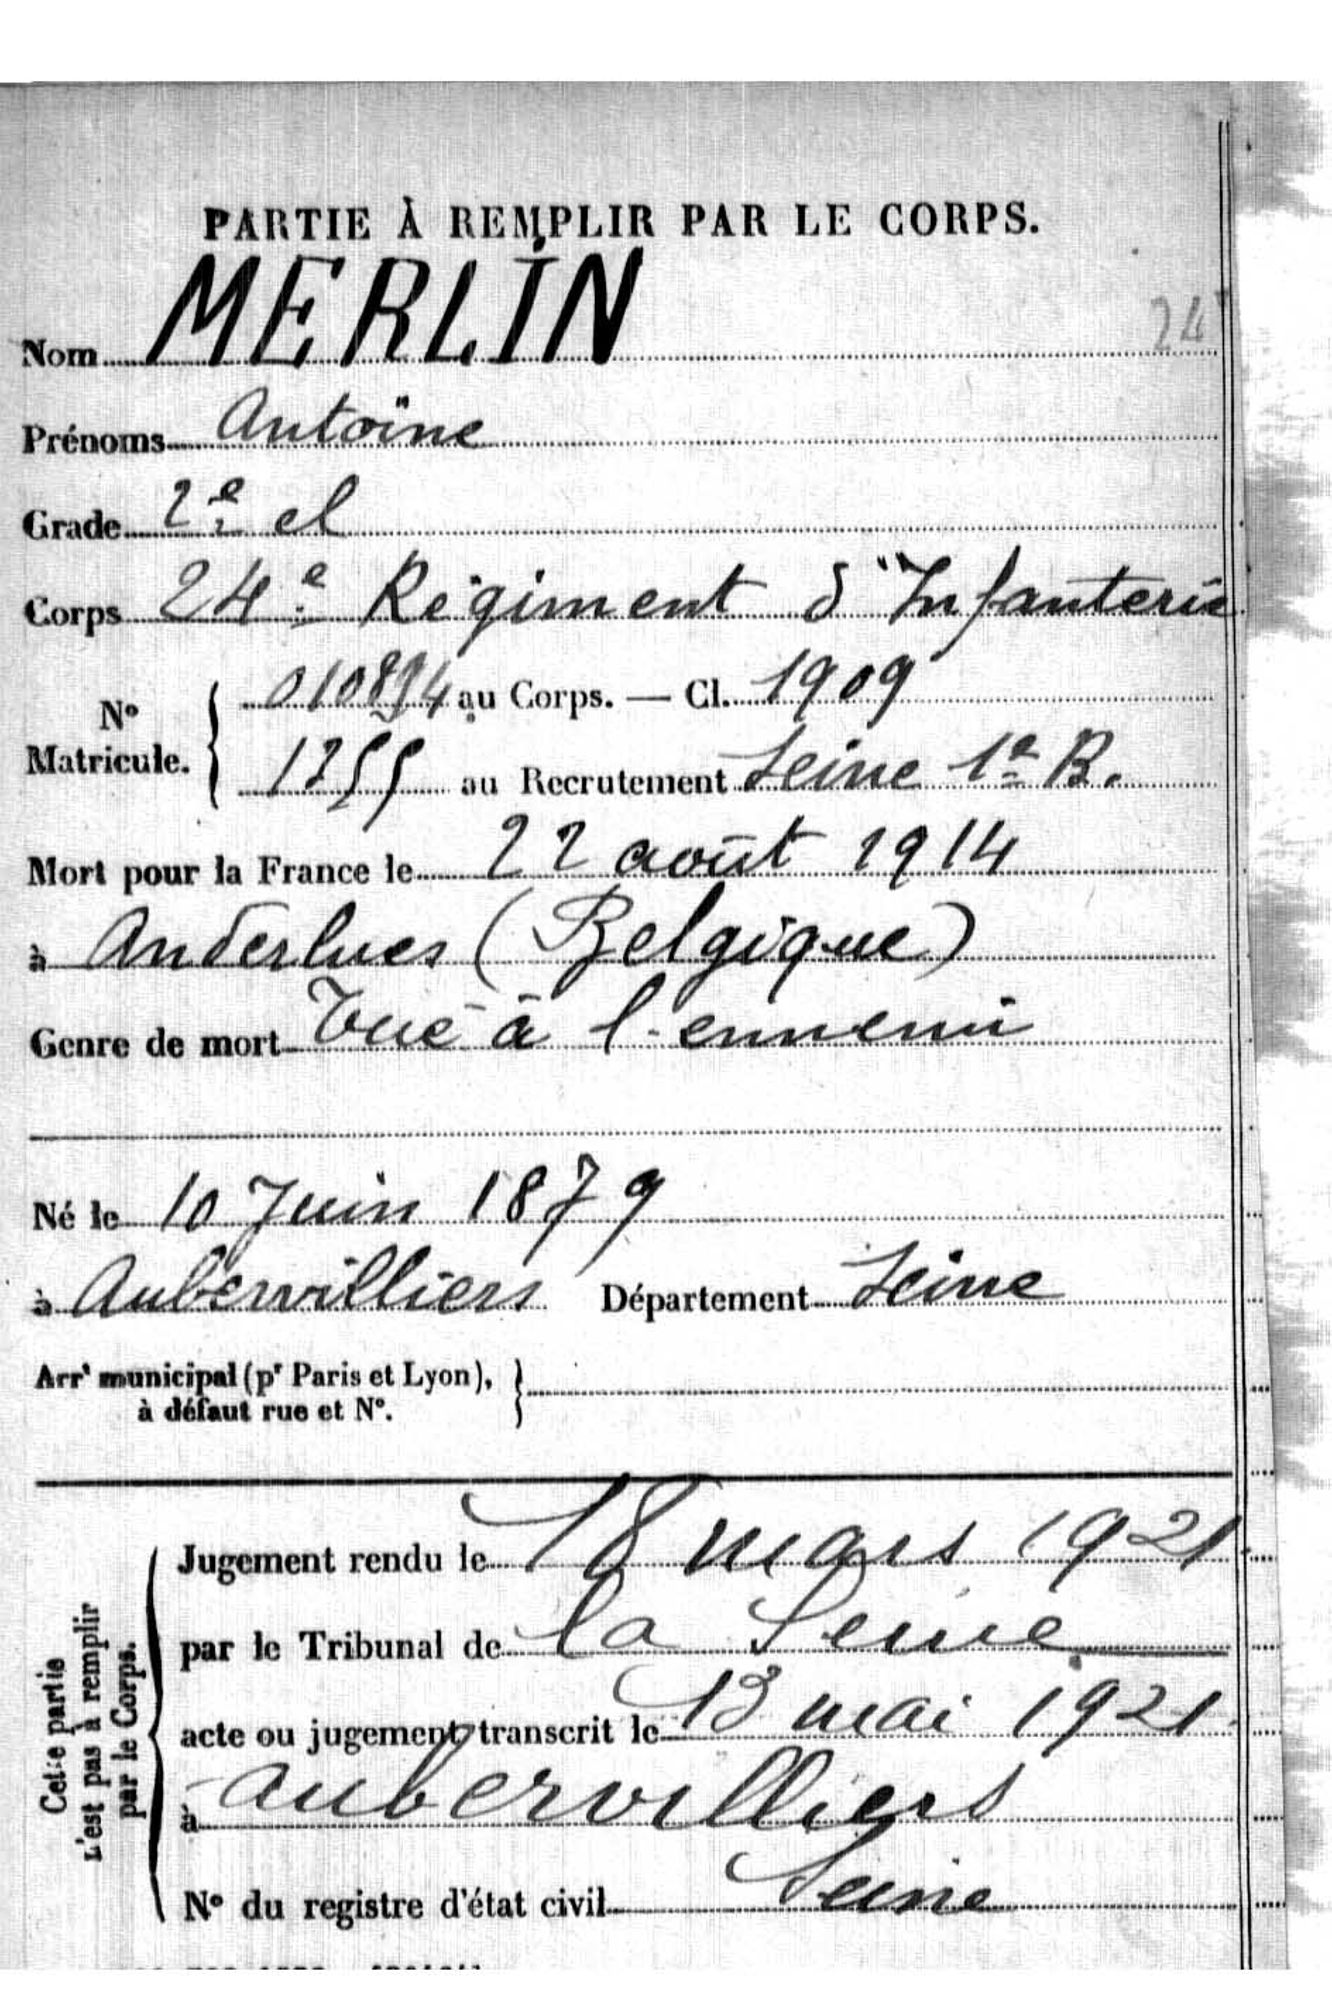 PARTIE À REMPLIR PAR LE CORPS.
Nom MERLIN
24
Prénoms Antoine
Grade 2e cl
Corps 24e Régiment d'Infanterie
No Matricule.
010894 au Corps. — Cl. 1909
1255 au Recrutement Seine 1er B.
Mort pour la France le 22 août 1914
à Anderlues (Belgique)
Genre de mort Tué à l'ennemi
Né le 10 Juin 1879
à Aubervilliers Département Seine
Arrt municipal (pr Paris et Lyon),
à défaut rue et No.
Cette partie
n'est pas à remplir
par le Corps.
Jugement rendu le 18 mars 1921
par le Tribunal de la Seine
acte ou jugement transcrit le 13 mai 1921
à Aubervilliers
No du registre d'état civil Seine